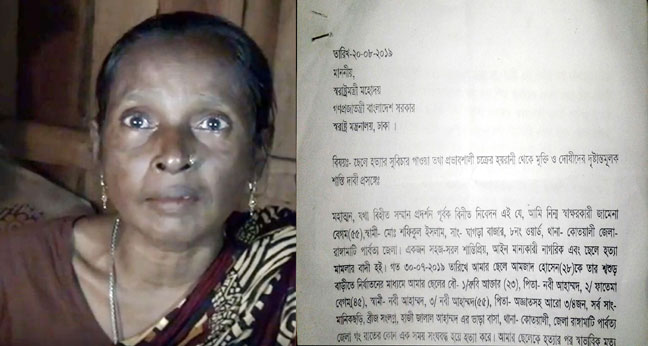 তারিখ-২০-০৮-২০১৯
মাননীয়,
স্বরাষ্ট্রমন্ত্রী মহোদয়
গণপ্রজাতন্ত্রী বাংলাদেশ সরকার
স্বরাষ্ট্র মন্ত্রনালয়, ঢাকা ।
বিষয়ঃ- ছেলে হত্যার সুবিচার পাওয়া তথা প্রভাবশালী চক্রের হয়রানী থেকে মুক্তি ও দোষীদের দৃষ্টান্তমূলক
শাস্তি দাবী প্রসঙ্গে।
মহাত্মন, যথা বিহীত সম্মান প্রদর্শন পূর্বক বিনীত নিবেদন এই যে, আমি নিম্ন স্বাক্ষরকারী জামেনা
বেগম(৫৫),স্বামী- মোঃ শফিকুল ইসলাম, সাং- ঘাগড়া বাজার, ৮নং ওয়ার্ড, থানা- কোতয়ালী জেলা-
রাঙ্গামাটি পার্বত্য জেলা। একজন সহজ-সরল শান্তিপ্রিয়, আইন মান্যকারী নাগরিক এবং ছেলে হত্যা
মামলার বাদী হই। গত ৩০-০৭-২০১৯ তারিখে আমার ছেলে আমজাদ হোসেন(২৮)কে তার শ্বশুড়
বাড়ীতে নির্যাতনের মাধ্যমে আমার ছেলের বৌ- ১/রুবি আক্তার (২৩), পিতা- নবী আহাম্মদ, ২/ ফাতেমা
বেগম(৪৫), স্বামী- নবী আহাম্মদ, ৩/ নবী আহাম্মদ(৫৫), পিতা- অজ্ঞাতসহ আরো ৩/৪জন, সর্ব সাং-
মানিকছড়ি, ব্রীজ সংলগ্ন, হাজী জালাল আহাম্মদ এর ভাড়া বাসা, থানা- কোতয়ালী, জেলা রাঙ্গামাটি পার্বত্য
জেলা গং রাতের কোন এক সময় সংঘবদ্ধ হয়ে হত্যা করে। আমার ছেলেকে হত্যার পর স্বাভাবিক মৃত্যু